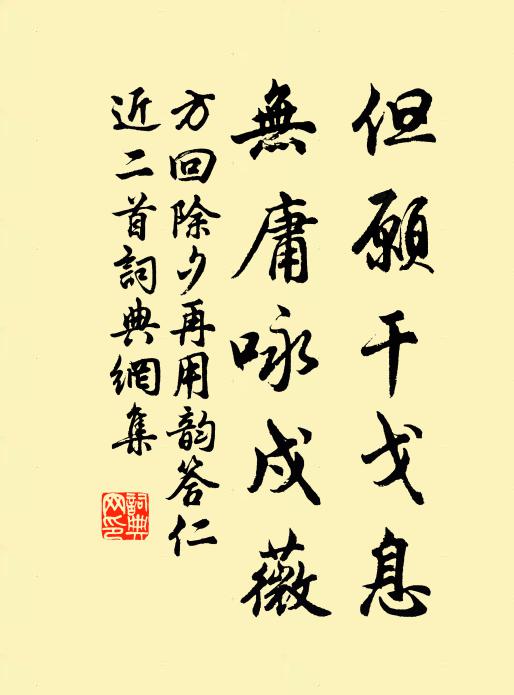 但願干戈息
無庸咏戍薇
方回除夕再用韵答仁
近二首詞典網集
詞典
网印